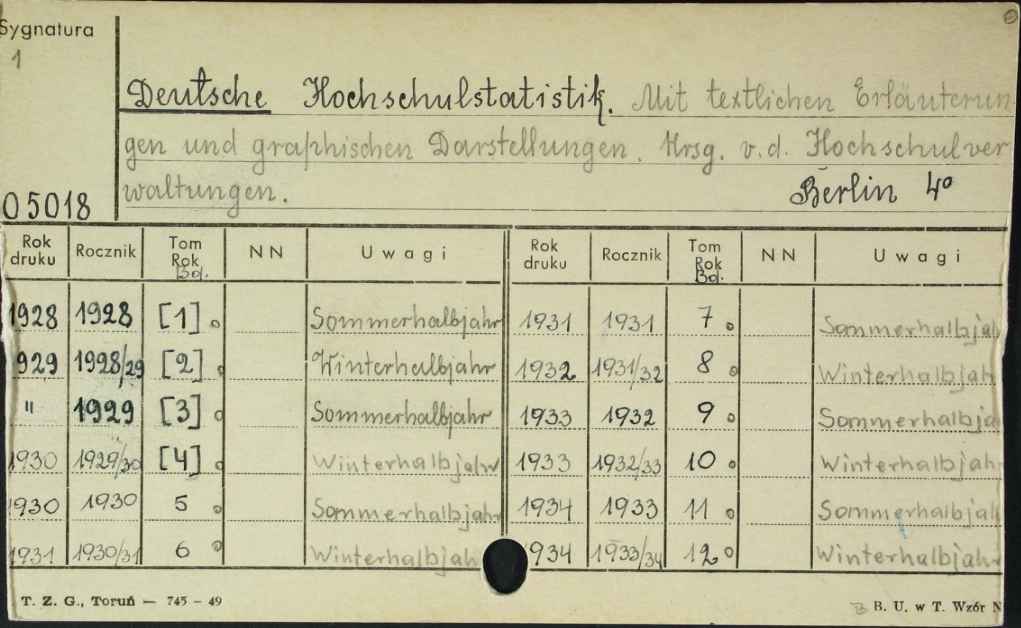 Sygnatura
1
Deutsche Hochschulstatistik. Mit textlichen Erläuterun
gen und graphischen Darstellungen. Hrsg. v.d. Hochschulver
waltungen. Berlin 4°
05018
Rok druku Rocznik Tom Rok Bd. NN Uwagi Rok druku Rocznik Tom Rok Bd. NN Uwagi
1928 1928 [1] Sommerhalbjahr 1931 1931 7 Sommerhalbjah
1929 1928/29 [2] Winterhalbjahr 1932 1931/32 8 Winterhalbjah
" 1929 [3] Sommerhalbjahr 1933 1932 9 Sommerhalbja
1930 1929/30 [4] Winterhalbjahr 1933 1932/33 10 Winterhalbjah
1930 1930 5 Sommerhalbjahr 1934 1933 11 Sommerhalbjah
1931 1930/31 6 Winterhalbjah 1934 1933/34 12 Winterhalbjahr
T. Z. G., Toruń — 745 - 49 B. U. w T. Wzór N